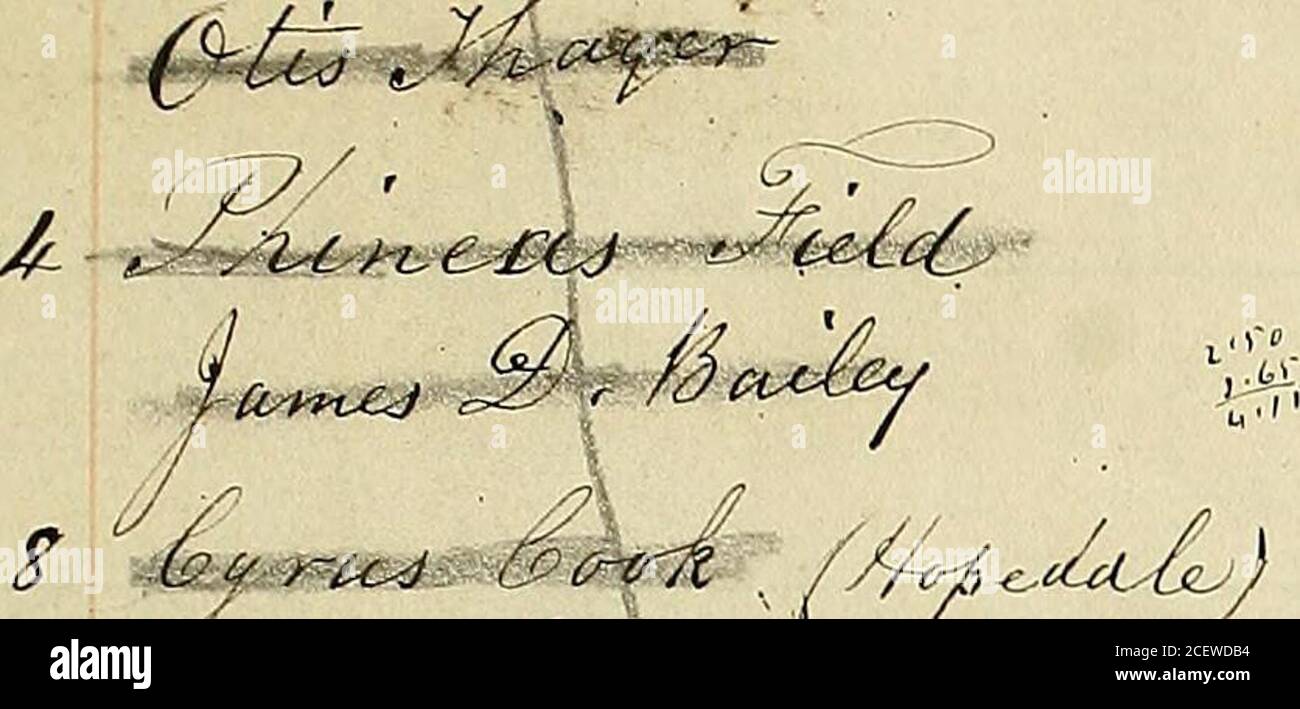 Otis Thayer
4 Phineas Field
James D. Bailey
2.50
4.11
8 Cyrus Cook. (Hopedale)
alamy
Image ID: 2CEWDB4
www.alamy.com